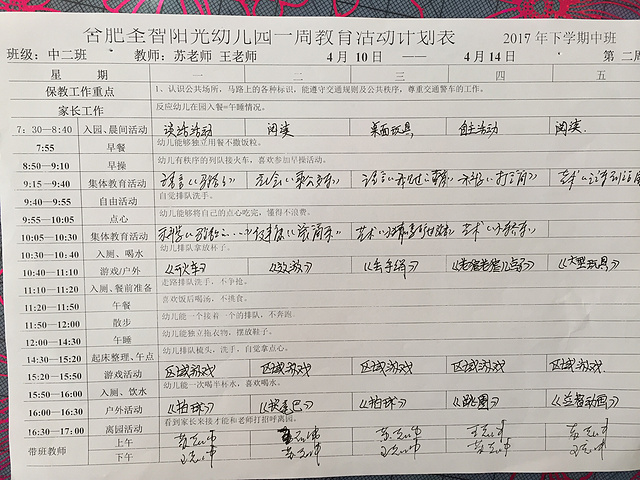 合肥圣智阳光幼儿园一周教育活动计划表 2017年下学期中班
班级：中二班 教师：苏老师 王老师 4月10日 —— 4月14日 第二周
星期 一 二 三 四 五
保教工作重点 1、认识公共场所，马路上的各种标识，能遵守交通规则及公共秩序，尊重交通警车的工作。
家长工作 反应幼儿在园入餐=午睡情况。
7：30—8:40 入园、晨间活动 谈话活动 阅读 桌面玩具 自主活动 阅读.
7:55 早餐 幼儿能够独立用餐不撒饭粒。
8:50—9:10 早操 幼儿有秩序的列队接火车，喜欢参加早操活动。
9:15—9:40 集体教育活动 语言 社会 语言 艺术
9:40—9:55 自由活动 自觉排队洗手。
9:55—10:05 点心 幼儿能够将自己的点心吃完，懂得不浪费。
10:05—10:30 集体教育活动 艺术 艺术
10:30—10:40 入厕、喝水 幼儿排队拿放杯子。
10:40—11:10 游戏/户外 《开火车》 《丢手绢》 《大型玩具》
11:10—11:20 入厕、餐前准备 走路排队洗手，不争抢。
11:20—11:50 午餐 喜欢饭后喝汤，不挑食。
11:50—12:00 散步 幼儿能一个接着一个的排队，不奔跑。
12:00—14:30 午睡 幼儿能独立拖衣物，摆放鞋子。
14:30—15:20 起床整理、午点 幼儿排队梳头，洗手，自觉拿点心。
15:20—15:50 游戏活动 区域游戏 区域游戏 区域游戏 区域游戏 区域游戏.
15:50—16:00 入厕、饮水 幼儿能一次喝半杯水，喜欢喝水。
16:00—16:30 户外活动 《拍球》 《揪尾巴》 《拍球》 《跳圈》
16:30—17:00 离园活动 看到家长来接才能和老师打招呼离园。
带班教师 上午
下午